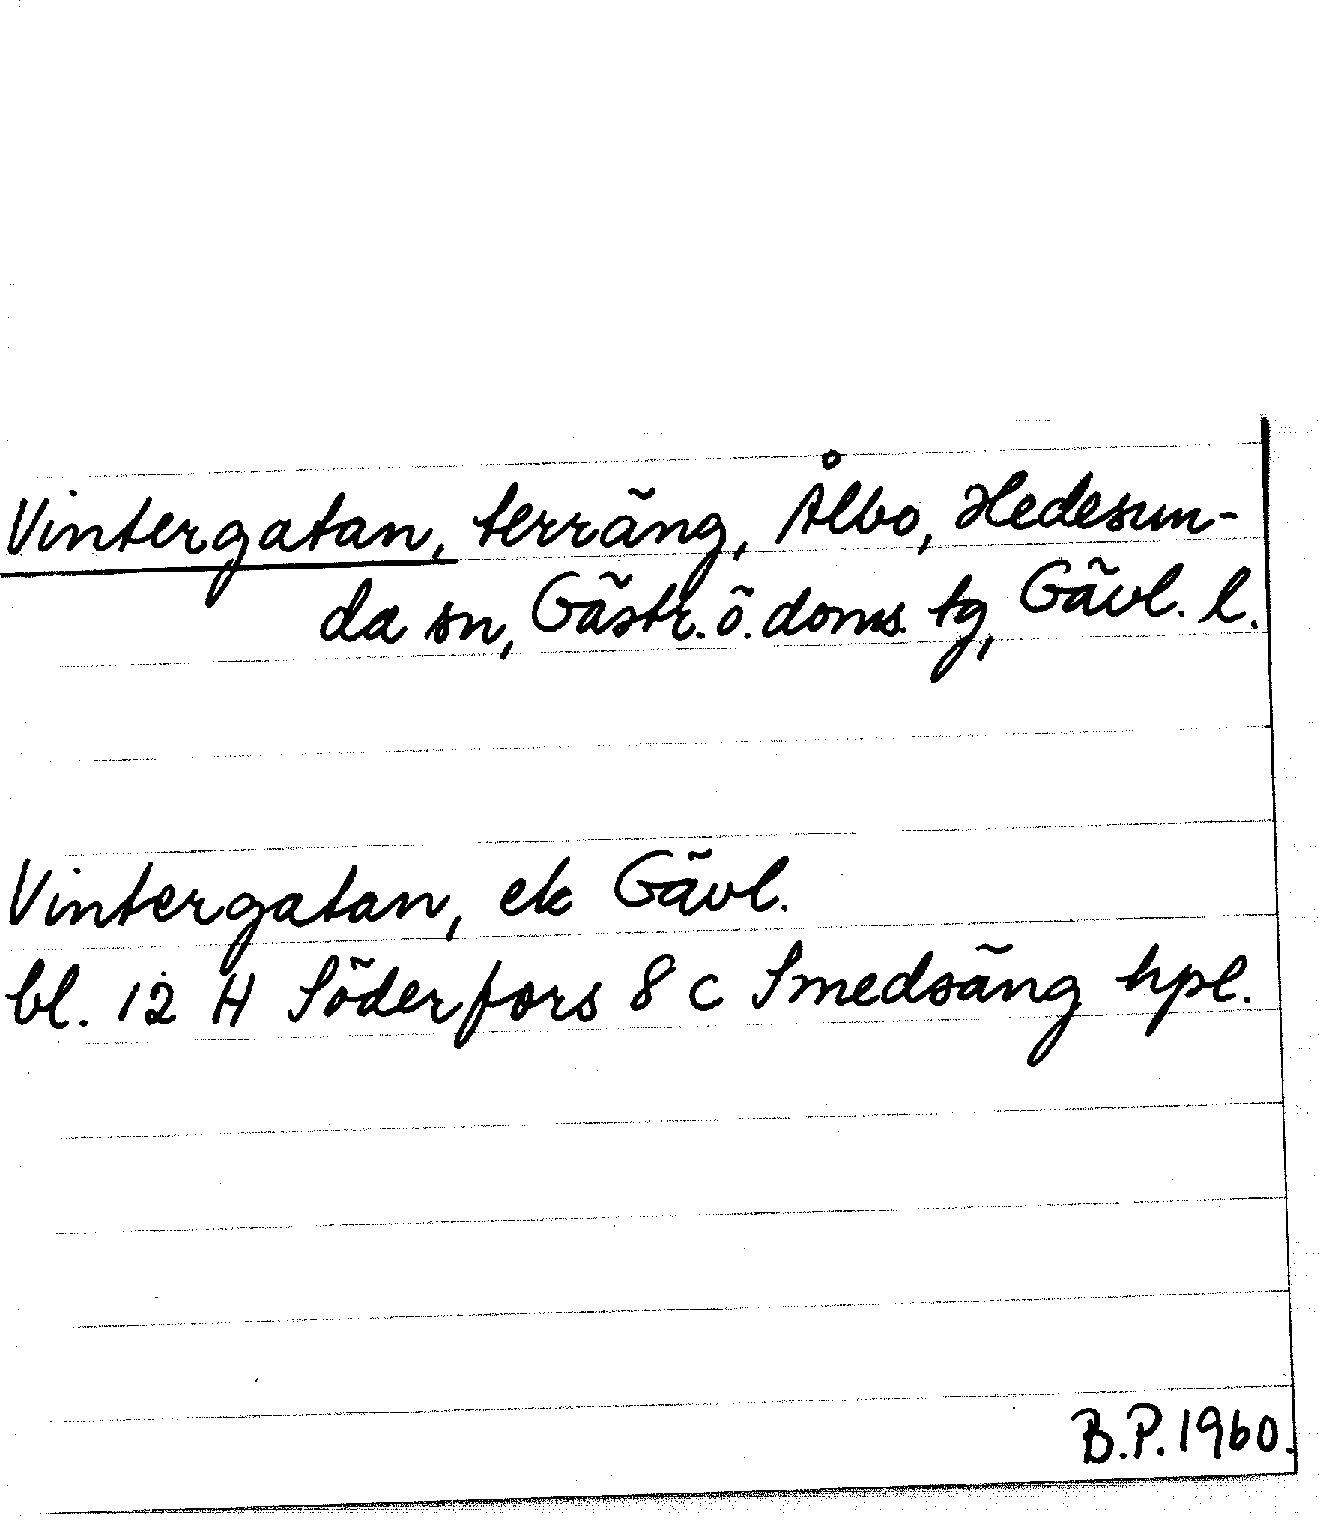 Vintergatan, terräng, Ålbo, Hedesun-
da sn, Gästr. ö. doms. tg, Gävl. l.
Vintergatan, ek Gävl.
bl. 12 H Söderfors 8 c Smedsäng hpl.
B.P. 1960.